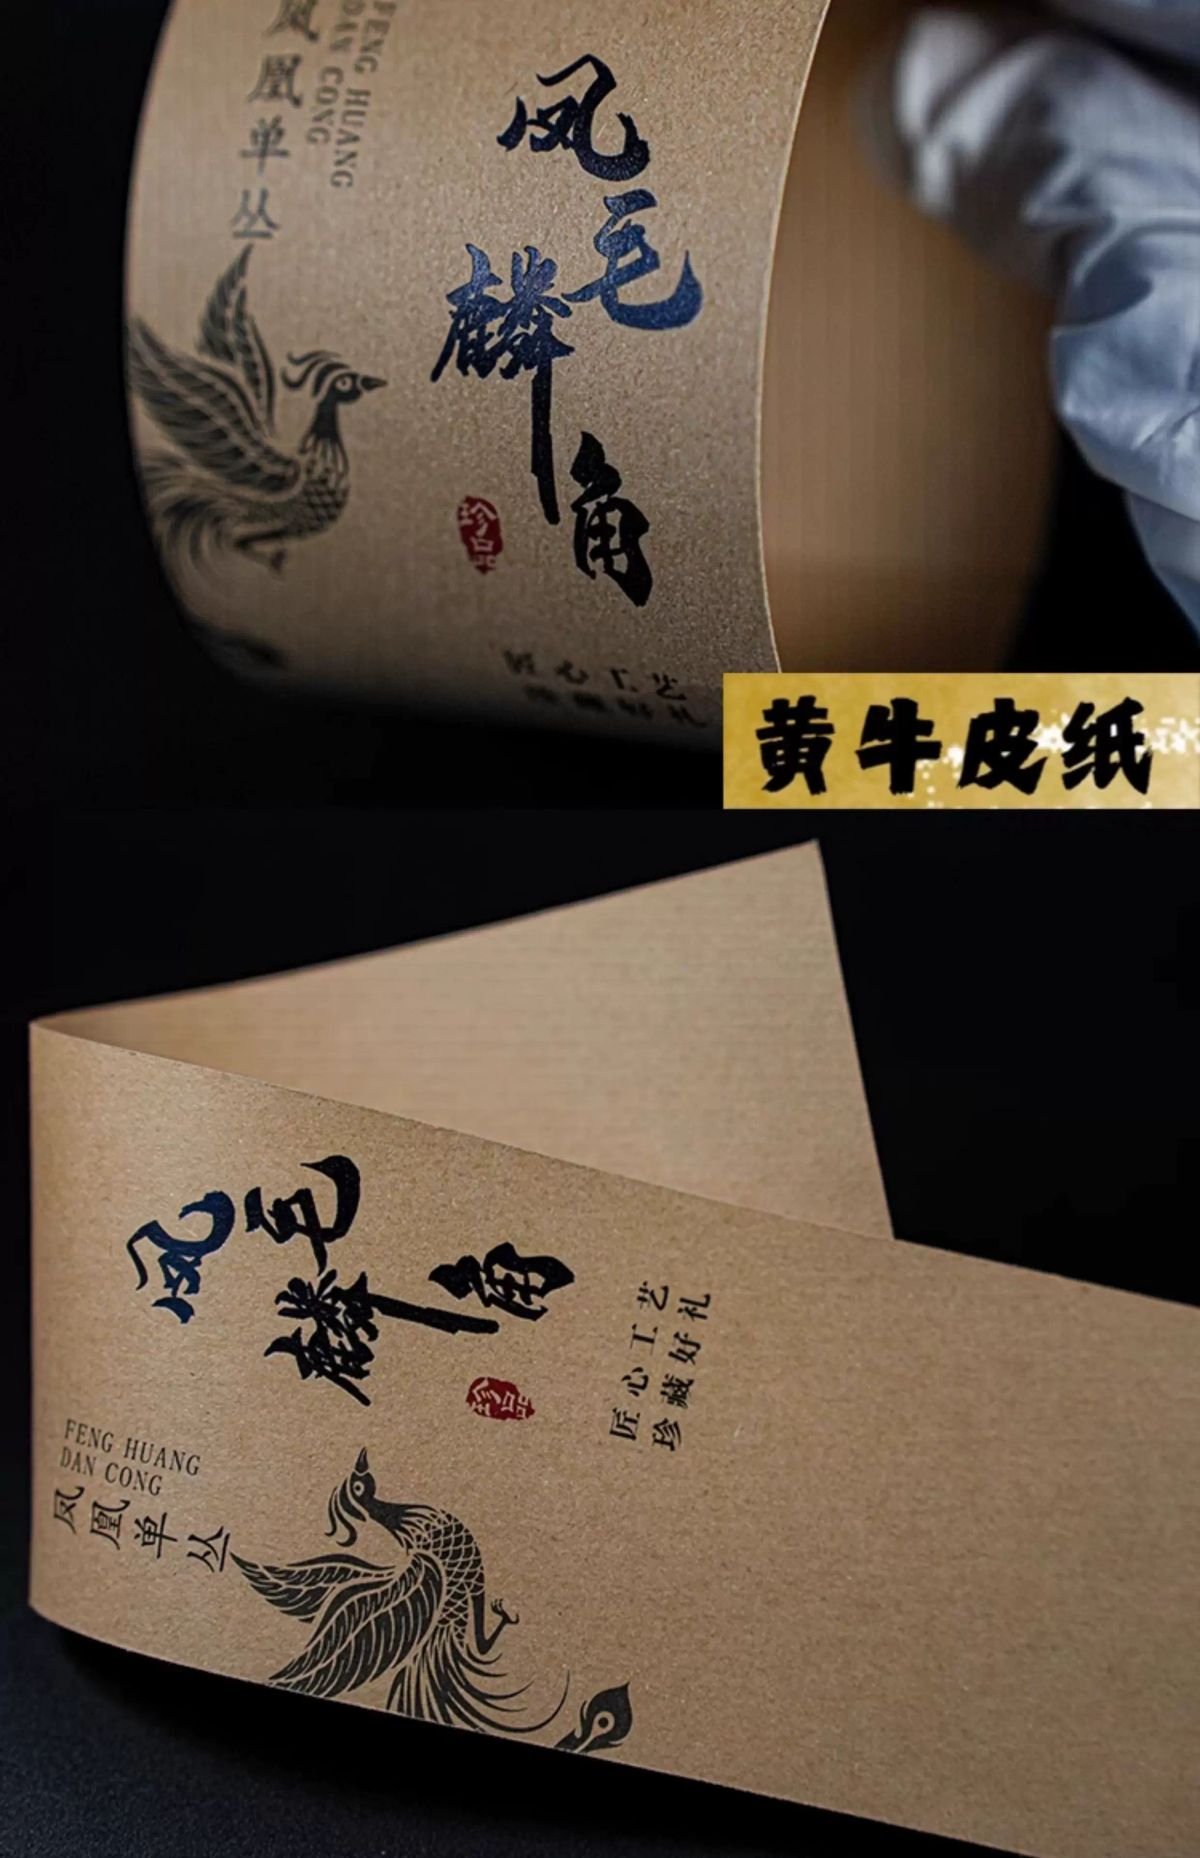 凤凰单丛
FENG HUANG
DAN CONG
凤毛麟角
珍品
匠心工艺
珍藏好礼
黄牛皮纸
凤毛麟角
珍品
匠心工艺
珍藏好礼
FENG HUANG
DAN CONG
凤凰单丛